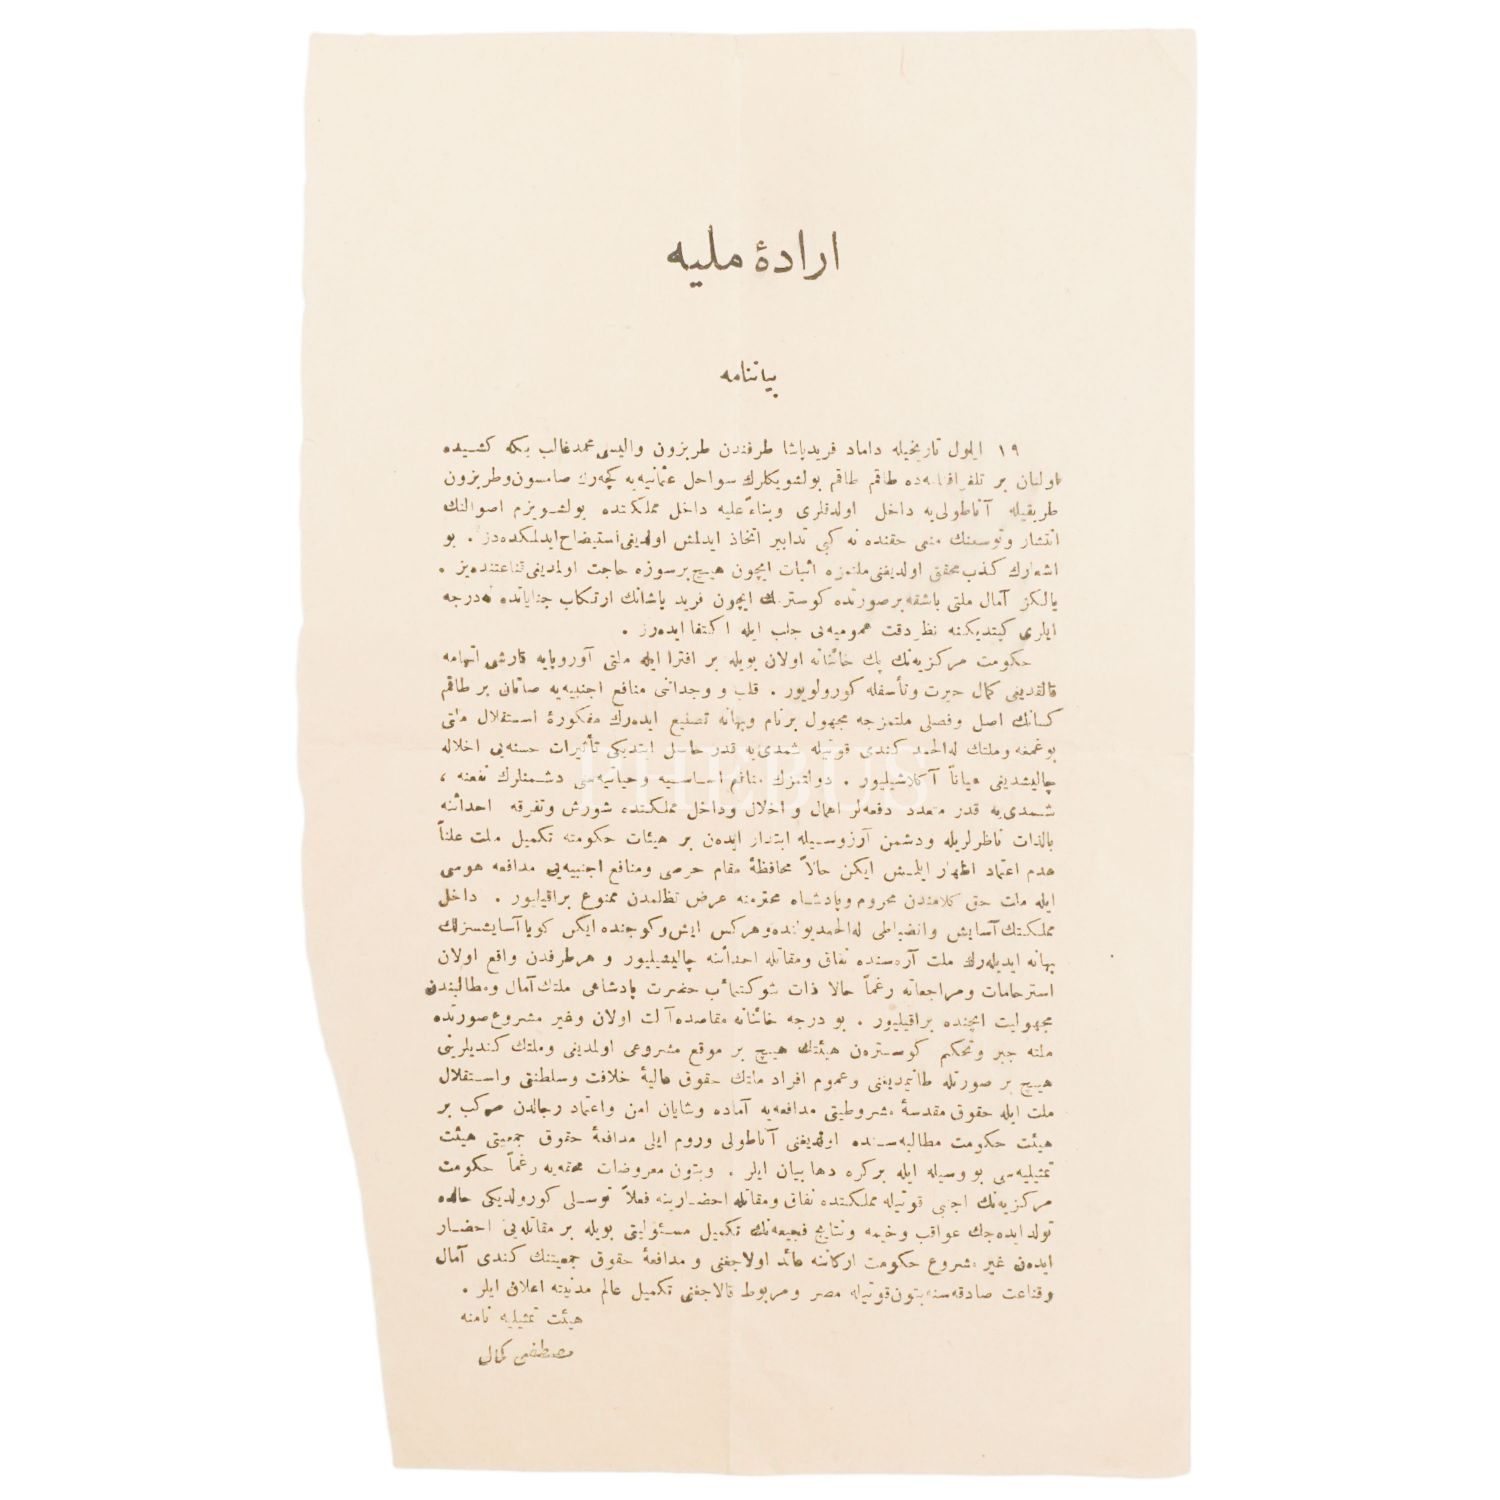 ارادۀ ملیه
بیاننامه
١٩ ایلول تاریخیله داماد فریدپاشا طرفندن طربزون والیسی محمدغالب بکه کشیده
اولنان بر تلغرافنامه‌ده طاقم طاقم بولشویکلرك سواحل عثمانیه‌یه کچه‌رك صامسون‌وطربزون
طریقیله آناطولی‌یه داخل اولدقلری وبناءً علیه داخل مملکتده بولشویزم اصوالنك
انتشار وتوسعنك منعی حقنده نه کبی تدابیر اتخاذ ایدلمش اولدیغی‌استیضاح‌ایدلمکده‌در . بو
اشعارك کذب‌محقق اولدیغنی‌ملتمزه اثبات ایچون هیچ‌برسوزه حاجت اولمدیغی‌قناعتنده‌یز .
یالکز آمال ملتی باشقه‌برصورتده کوسترمك ایچون فرید پاشانك ارتکاب جنایاتده نه‌درجه
ایلری کیتدیکنه نظردقت عمومیه‌یی جلب ایله اکتفا ایده‌رز .
حکومت مرکزیه‌نك پك خائنانه اولان بویله بر افترا ایله ملتی آوروپایه قارشی اتهامه
قالقدیغی کمال حیرت وتأسفله کورولویور . قلب و وجداننی منافع اجنبیه‌یه صاتان بر طاقم
کسانك اصل وفصلی ملتمزجه مجهول برنام وبهانه تصنیع ایده‌رك مفکورۀ استقلال ملتی
بوغمغه وملتك له‌الحمد کندی قوتیله شمدی‌یه قدر حاصل ایتدیکی تأثیرات حسنه‌یی اخلاله
چالیشدیغی عیاناً آکلاشیلیور . دولتمزك منافع اساسیه وحیاتیه‌سی دشمنلرك نفعنه ،
شمدی‌یه قدر متعدد دفعه‌لر اهمال و اخلال وداخل مملکتده شورش وتفرقه احداثنه
بالذات ناظرلریله ودشمن آرزوسیله ابتدار ایدن بر هیئات حکومته تکمیل ملت علناً
عدم اعتماد اظهار ایلمش ایکن حالاً محافظۀ مقام حرصی ومنافع اجنبیه‌یی مدافعه هوسی
ایله ملت حق کلامندن محروم وپادشاه محترمنه عرض تظلمدن ممنوع براقیلیور . داخل
مملکتك‌آسایش وانضباطی له‌الحمدیولنده‌وهرکس ایش‌وکوجنده ایکن کویاآسایشسزلك
بهانه ایدیله‌رك ملت آره‌سنده نفاق ومقاتله احداثنه چالیشیلیور و هرطرفدن واقع اولان
استرحامات ومراجعاته رغماً حالا ذات شوکتمآب حضرت پادشاهی ملتك‌آمال ومطالبندن
مجهولیت ایچنده براقیلیور . بو درجه خائنانه مقاصده‌آلت اولان وغیر مشروع‌صورتده
ملته جبر وتحکم کوسترن هیئتك هیچ بر موقع مشروعی اولمدیغی وملتك کندیلرینی
هیچ بر صورتله طانیمدیغنی وعموم افراد ملتك حقوق عالیۀ خلافت وسلطنتی واستقلال
ملت ایله حقوق مقدسۀ مشروطیتی مدافعه‌یه آماده وشایان امن واعتماد رجالدن مرکب بر
هیئت حکومت مطالبه‌سنده اولدیغنی آناطولی وروم ایلی مدافعۀ حقوق جمعیتی هیئت
تمثیلیه‌سی بو وسیله ایله برکره دها بیان ایلر . وبتون معروضات محقه‌یه رغماً حکومت
مرکزیه‌نك اجنبی قوتیله مملکتده نفاق ومقاتله احضارینه فعلاً توسلی کورولدیکی حالده
تولد ایده‌جك عواقب وخیمه ونتایج فجیعه‌نك تکمیل مسئولیتی بویله بر مقاتله‌یی احضار
ایدن غیر مشروع حکومت ارکاننه عائد اولاجغنی و مدافعۀ حقوق جمعیتنك کندی آمال
وقناعت صادقه‌سنه‌بتون‌قوتیله مصر ومربوط قالاجغنی تکمیل عالم مدنیته اعلان ایلر .
هیئت تمثیلیه نامنه
مصطفی کمال
PHEBUS